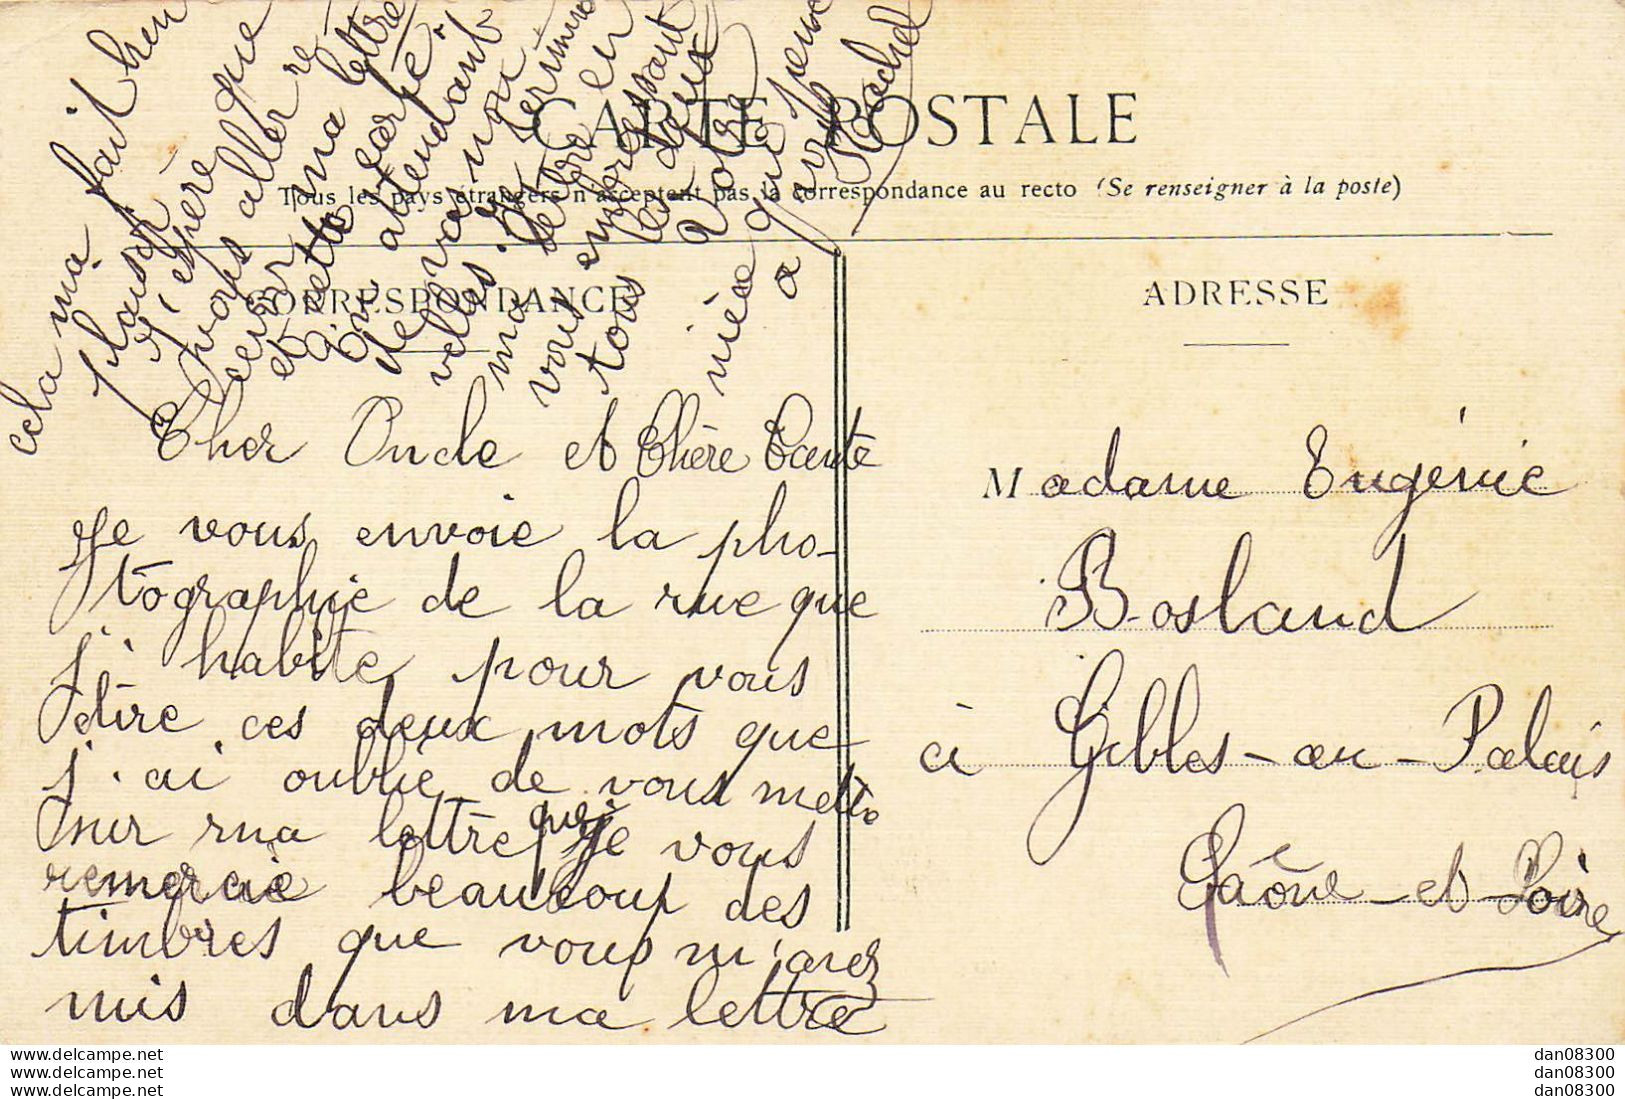 CARTE POSTALE
Tous les pays étrangers n'acceptent pas la correspondance au recto (Se renseigner à la poste)
CORRESPONDANCE
Cher Oncle et Chère Tante
Je vous envoie la pho-
tographie de la rue que
j'habite pour vous
dire ces deux mots que
j'ai oublié de vous mettre
sur ma lettre que je vous
remercie beaucoup des
timbres que vous m'avez
mis dans ma lettre
cela ma fait bien
plaisir
J'espère que
vous aller
recevoir ma lettre
et cette carte
En attendant
de vos nou
velles je termine
ma lettre en
vous embrassant
tous les deux
Votre
nièce qui pense
a vous
Rachel
ADRESSE
Madame Eugénie
Bosland
à Gibles-au-Palais
Saône-et-Loire
www.delcampe.net
www.delcampe.net
www.delcampe.net
dan08300
dan08300
dan08300